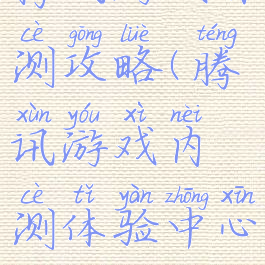 cè gōng lüè téng
测攻略(腾
xùn yóu xì nèi
讯游戏内
cè tǐ yàn zhōng xīn
测体验中心